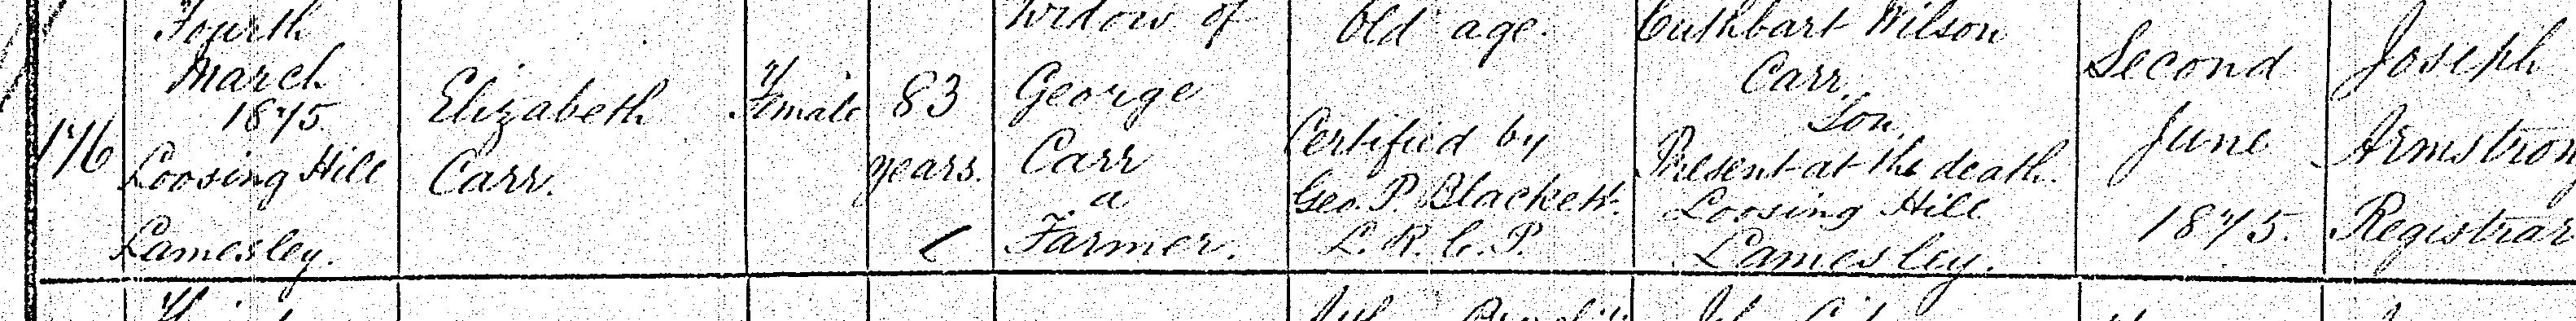 176
Fourth
March
1875
Loosing Hill
Lamesley.
Elizabeth
Carr.
Female
83
years.
Widow of
George
Carr
a
Farmer.
Old age.
Certified by
Geo. P. Blackett.
L. R. C. P.
Cuthbart Wilson
Carr.
Son.
Present at the death.
Loosing Hill
Lamesley.
Second
June
1875.
Joseph
Armstrong
Registrar